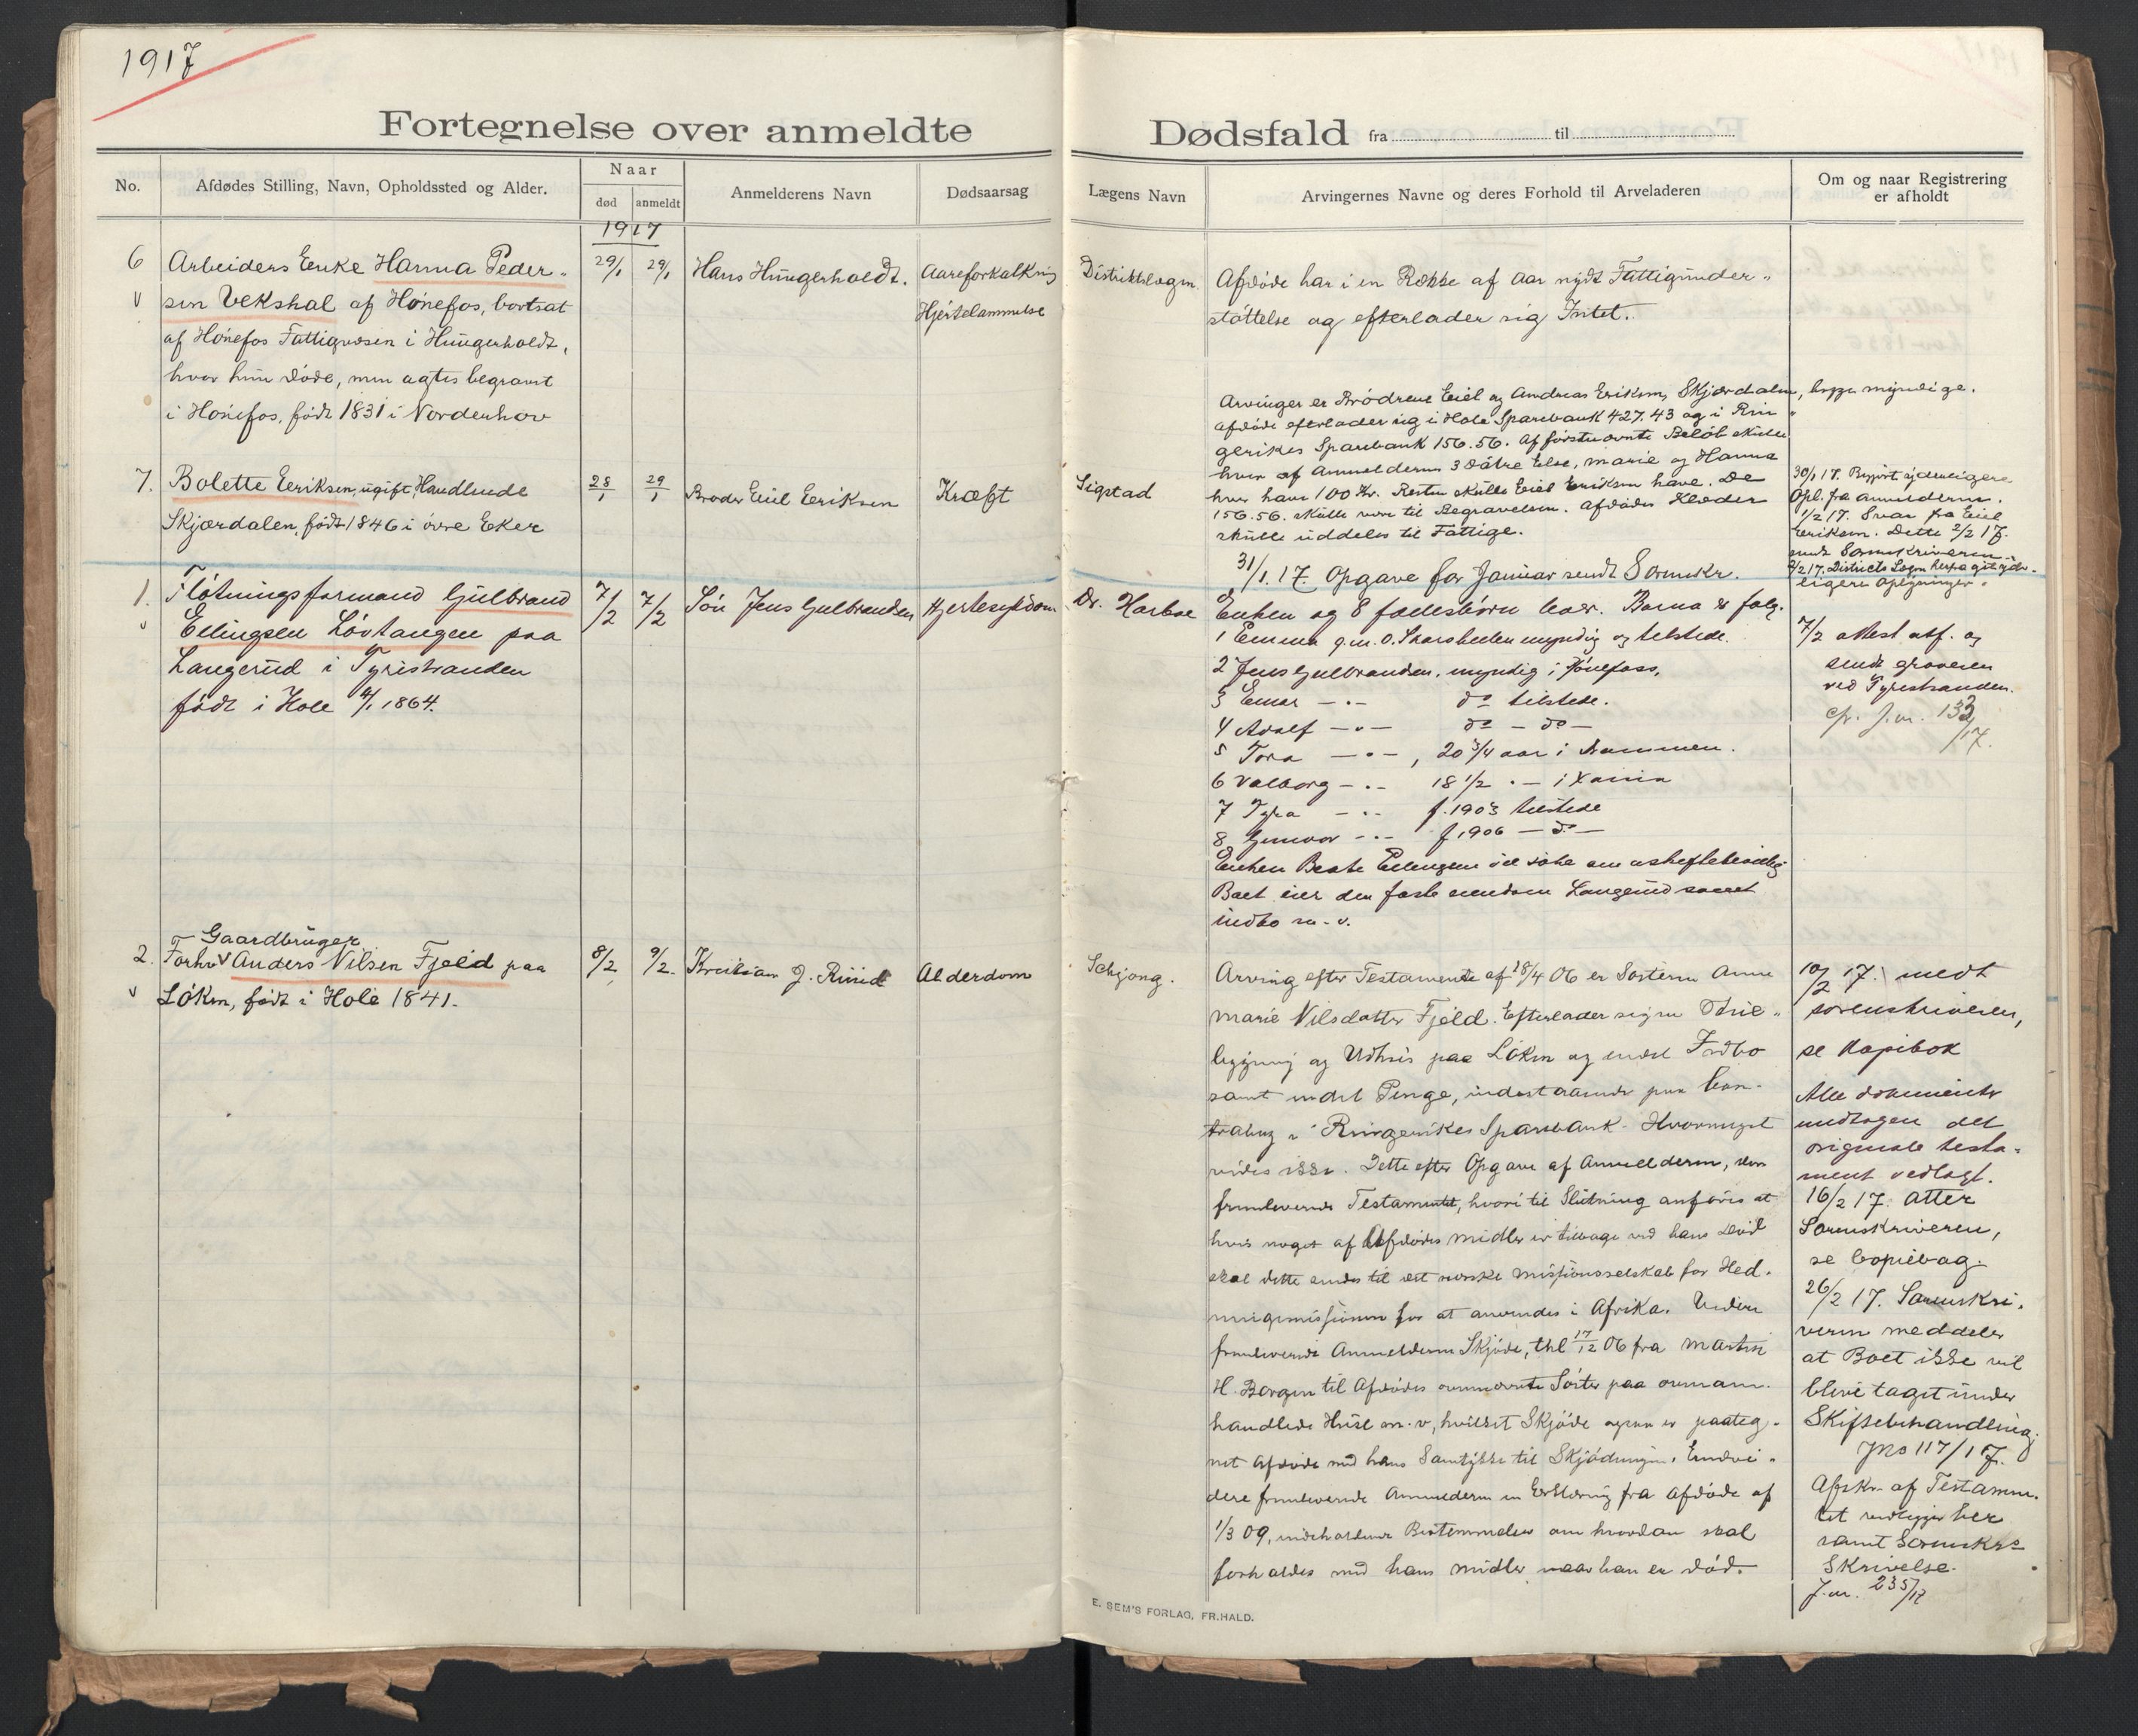 1917
Fortegnelse over anmeldte Dødsfald fra til
No.
Afdødes Stilling, Navn, Opholdssted og Alder.
Naar
død
anmeldt
Anmelderens Navn
Dødsaarsag
Lægens Navn
Arvingernes Navne og deres Forhold til Arveladeren
Om og naar Registrering
er afholdt
1917
6 Arbeiders Enke Hanna Peder-
sen Vekshal af Hønefos, bortsat
af Hønefos Fattigvæsen i Hungerholdt,
hvor hun døde, men agtes begravet
i Hønefos, født 1831 i Norderhov
29/1
29/1
Hans Hungerholdt.
Aareforkalkning
Hjertelammelse
Distriktslægen
Afdøde har i en Række af Aar nydt Fattigunder-
støttelse og efterlader sig Intet.
7. Bolette Eriksen, ugift, Handlende
Skjærdalen, født 1846 i øvre Eker
28/1
29/1
Broder Eriksen
Kræft
Sigstad
Arvinger er Brødrene og Andreas Eriksen, Skjærdalen, begge myndige.
Afdøde efterlader sig i Hole Sparebank 427.43 og i Rin-
gerikes Sparebank 156.56. Af førstnævnte Beløb skulle
hver af Anmelderens 3 Døtre Else, Marie og Hanna
hver have 100 Kr. Resten skulle Eriksen have. De
156.56. skulle være til Begravelsen. Afdødes Klæder
skulle uddeles til Fattige.
30/1 17. ydeligere
Opl. fra Anmelderen.
1/2 17. Svar fra
Eriksen. Dette 2/2 17.
sendt Sorenskriveren
2/2 17. Districts Lægen
ligere oplysninger.
31/1. 17. Opgave for Januar sendt Sorenskr.
1. Fløtningsformand Gulbrand
Ellingsen Løvtangen paa
Langerud i Tyristranden
født i Hole 1864.
7/2
7/2
Søn Jens Gulbrandsen
Hjertesykdom
Dr. Harboe
Enken og 8 fællesbørn lever. Barna er følg.
1 Emma g.m. O. myndig og tilstede.
2 Jens Gulbrandsen, myndig i Hønefoss,
3 Einar — " — do tilstede.
4 Adolf — " — do — do —
5 Tora — " —, 20 3/4 aar i Drammen.
6 Valborg — " — 18 1/2 " — i
7 Tyra — " — f. 1903 tilstede
8 Gunvor — " — f. 1906 — do —
Enken Beate Ellingsen vil søke om uskiftebevilling
Boet eier den faste eiendom Langerud samt
indbo m. v.
7/2 attest utf. og
sendt graveren
ved Tyristranden.
cfr. J. nr. 133/17.
2. Gaardbruger
Forhv Anders Nilsen Fjeld paa
Løken, født i Hole 1841.
8/2
9/2.
Kristian J. Rud
Alderdom
Schjong.
Arving efter Testamente af 18/4 06 er Søsteren Anne
Marie Nilsdatter Fjeld. Efterlader sig en
og Udhus paa Løken og endel Indbo
samt endel Penge, indestaaende paa Con-
trabog i Ringerikes Sparebank. Hvormeget
vides ikke. Dette efter Opgave af Anmelderen, som
fremleverede Testamentet, hvori til Slutning anføres at
hvis noget af Afdødes Midler er tilbage ved hans Død
skal dette sendes til det norske Missionsselskab for Hed-
ningemissionen for at anvendes i Afrika. Videre
fremleverede Anmelderen Skjøde, thl 17/12 06 fra Martin
H. Borgen til Afdødes ovennævnte Søster paa ovenom-
handlede Huse m. v, hvilket Skjøde ogsaa er paateg-
net Afdøde med hans Samtykke til Skjødningen. Endvi-
dere fremleverede Anmelderen en Erklæring fra Afdøde af
1/3 09, indeholdende Bestemmelse om hvordan skal
forholdes med hans Midler naar han er død.
10/2 17. medt
sorenskriveren,
se Kopibok
Alle dokumenter
undtagen det
originale testa-
ment vedlagt.
16/2 17. Atter
Sorenskriveren,
se Copiebog.
26/2 17. Sorenskri-
veren meddeler
at Boet ikke vil
blive taget under
Skiftebehandling.
JNo 117/17.
Afskr. af Testamen-
tet vedligger her
samt Sorenskrs
Skrivelse.
J. nr. 235/17
E. SEM'S FORLAG, FR.HALD.